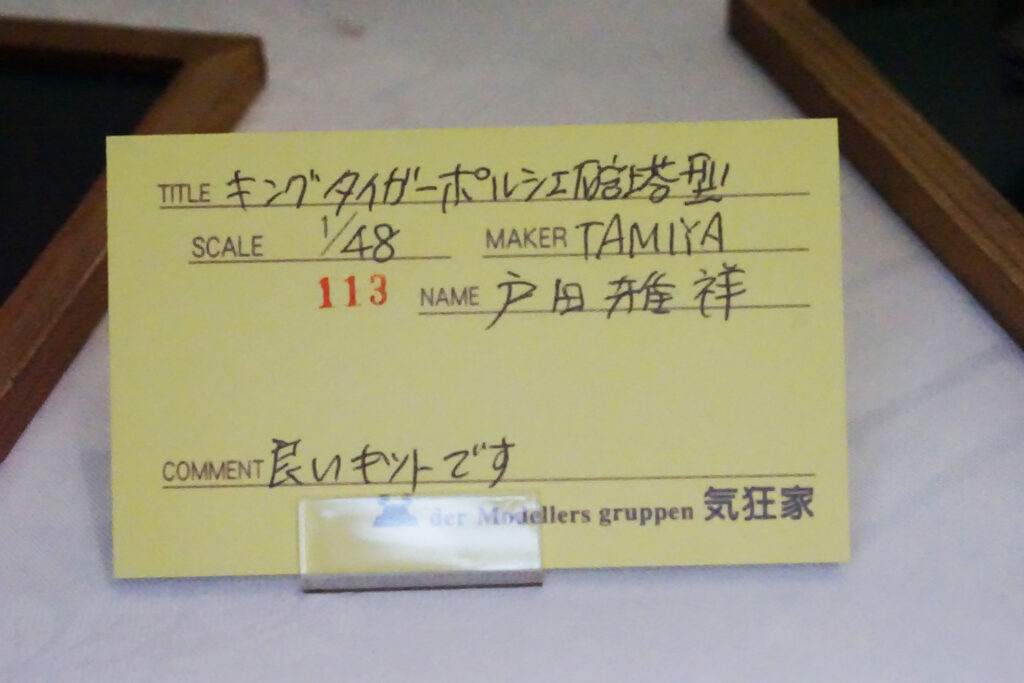 TITLE キングタイガーポルシェ砲塔型
SCALE 1/48 MAKER TAMIYA
113 NAME 戸田雅祥
COMMENT 良いキットです
der Modellers gruppen 気狂家